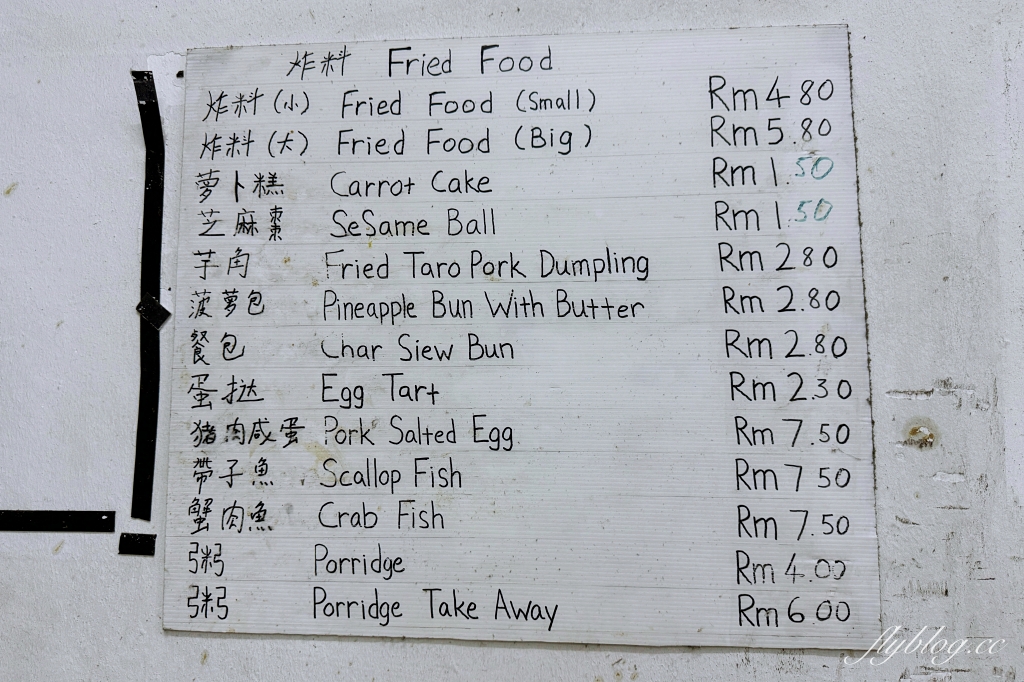 炸料 Fried Food
炸料(小) Fried Food (Small) Rm 4 80
炸料(大) Fried Food (Big) Rm 5.80
萝卜糕 Carrot Cake Rm 1.50
芝麻棗 SeSame Ball Rm 1.50
芋角 Fried Taro Pork Dumpling Rm 2 80
菠萝包 Pineapple Bun With Butter Rm 2.80
餐包 Char Siew Bun Rm 2.80
蛋挞 Egg Tart Rm 2.30
猪肉咸蛋 Pork Salted Egg Rm 7.50
帶子魚 Scallop Fish Rm 7 50
蟹肉魚 Crab Fish Rm 7.50
粥 Porridge Rm 4.00
粥 Porridge Take Away Rm 6.00
flyblog.cc